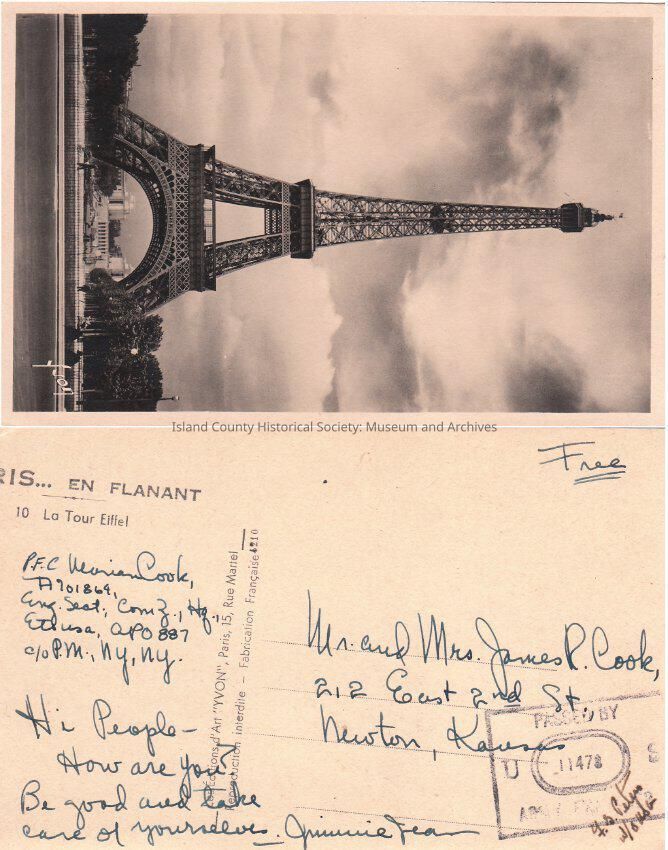 Yvon
Island County Historical Society: Museum and Archives
Free
RIS... EN FLANANT
10 La Tour Eiffel
P.F.C Marian Cook,
A901869,
Eng. Sect., Com Z., Hq.,
Etousa, APO 887
c/o P.M., Ny, Ny.
Hi People-
How are you?
Be good and take
care of yourselves. Jimmie Jean
Editions d'Art "YVON", Paris, 15, Rue Martel
Reproduction interdite - Fabrication Française
Mr. and Mrs. James R. Cook,
212 East 2nd St.
Newton, Kansas
PASSED BY
U 11478 S
ARMY